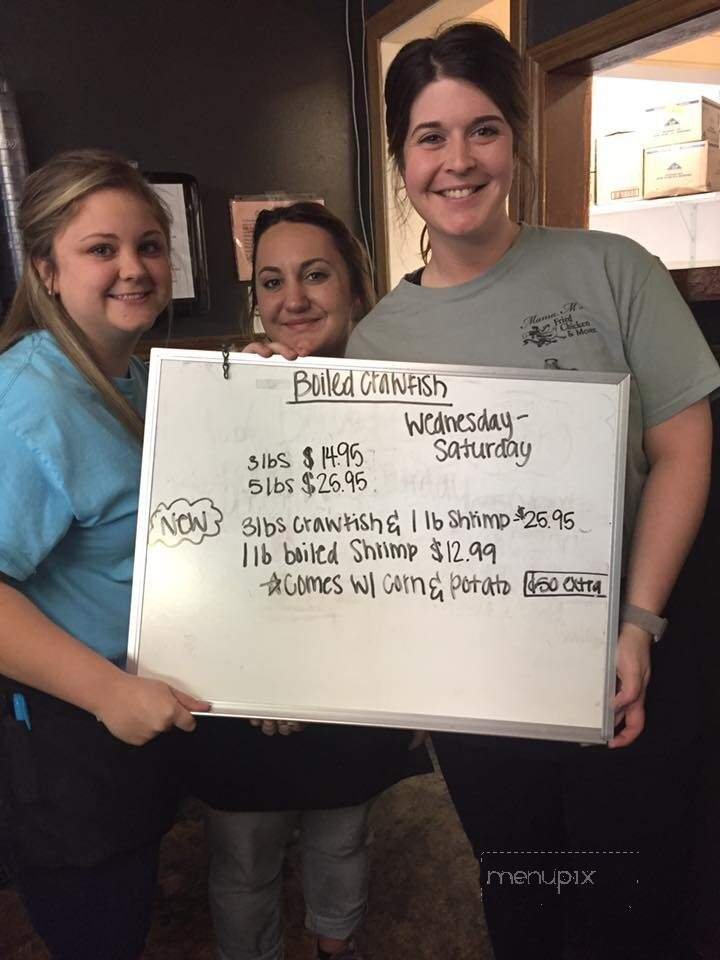 Mama M's
Fried
Chicken
& More
Boiled Crawfish
Wednesday-
Saturday
3lbs $14.95
5lbs $25.95
NEW 3lbs crawfish & 1 lb Shrimp $25.95
1 lb boiled Shrimp $12.99
☆Comes w/ corn & potato ¢50 extra
menupix